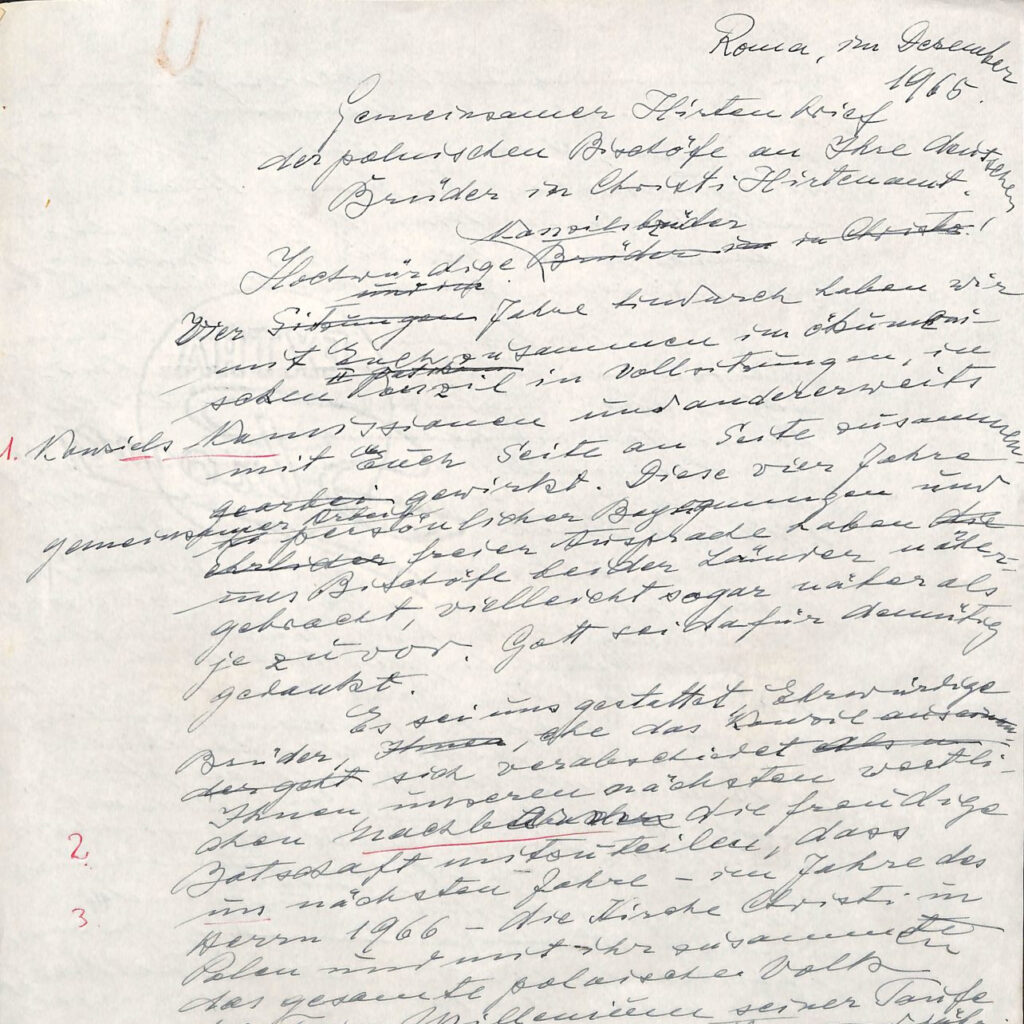 Roma, im Dezember
1965.
Gemeinsamer Hirtenbrief
der polnischen Bischöfe an Ihre deutschen
Brüder in Christi Hirtenamt.
Konzilsbrüder
Hochwürdige Brüder in Christo!
Vier Sitzungen Jahre hindurch haben wir
mit Euch zusammen im ökumeni-
schen Konzil in Vollsitzungen, in
1. Konzils Komissionen und andererweits
mit Euch Seite an Seite zusammen-
gearbei gewirkt. Diese vier Jahre
gemeinsamer Arbeit
persönlicher Begegnungen und
freier Ansprache haben die
uns Bischöfe beider Länder näher-
gebracht, vielleicht sogar näher als
je zuvor. Gott sei dafür demütig
gedankt.
Es sei uns gestattet, Ehrwürdige
Brüder, Ihnen, ehe das Konzil ausein-
dergeht sich verabschiedet
Ihnen unseren nächsten westli-
chen Nachbarn die freudige
2 Botschaft mitzuteilen, dass
im nächsten Jahre - im Jahre des
3 Herrn 1966 - die Kirche Christi in
Polen und mit ihr zusammen
das gesamte polnische Volk
Millenium seiner Taufe